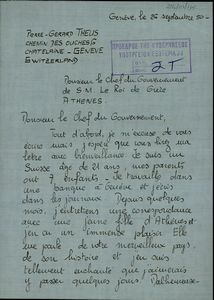 Genève, le 26 septembre 50
PIERRE-GERARD THEUS
CHEMIN DES OUCHES
CHATELAINE - GENÈVE
SWITZERLAND
Monsieur le Chef du Gouvernement
de S.M. Le Roi de Grèce
ATHENES.
Monsieur le Chef du Gouvernement,
Tout d'abord, je m'excuse de vous
écrire mais j'espère que vous lirez ma
lettre avec bienveillance. Je suis un
Suisse âgé de 21 ans, mes parents
ont 7 enfants. Je travaille dans
une banque à Genève et j'écris
dans les journaux. Depuis quelques
mois j'entretiens une correspondance
avec une jeune fille d'Athènes et
j'en ai un immense plaisir. Elle
me parle de votre merveilleux pays,
de son histoire et j'en suis
tellement enchanté que j'aimerais
y passer quelques jours. Malheureuse-